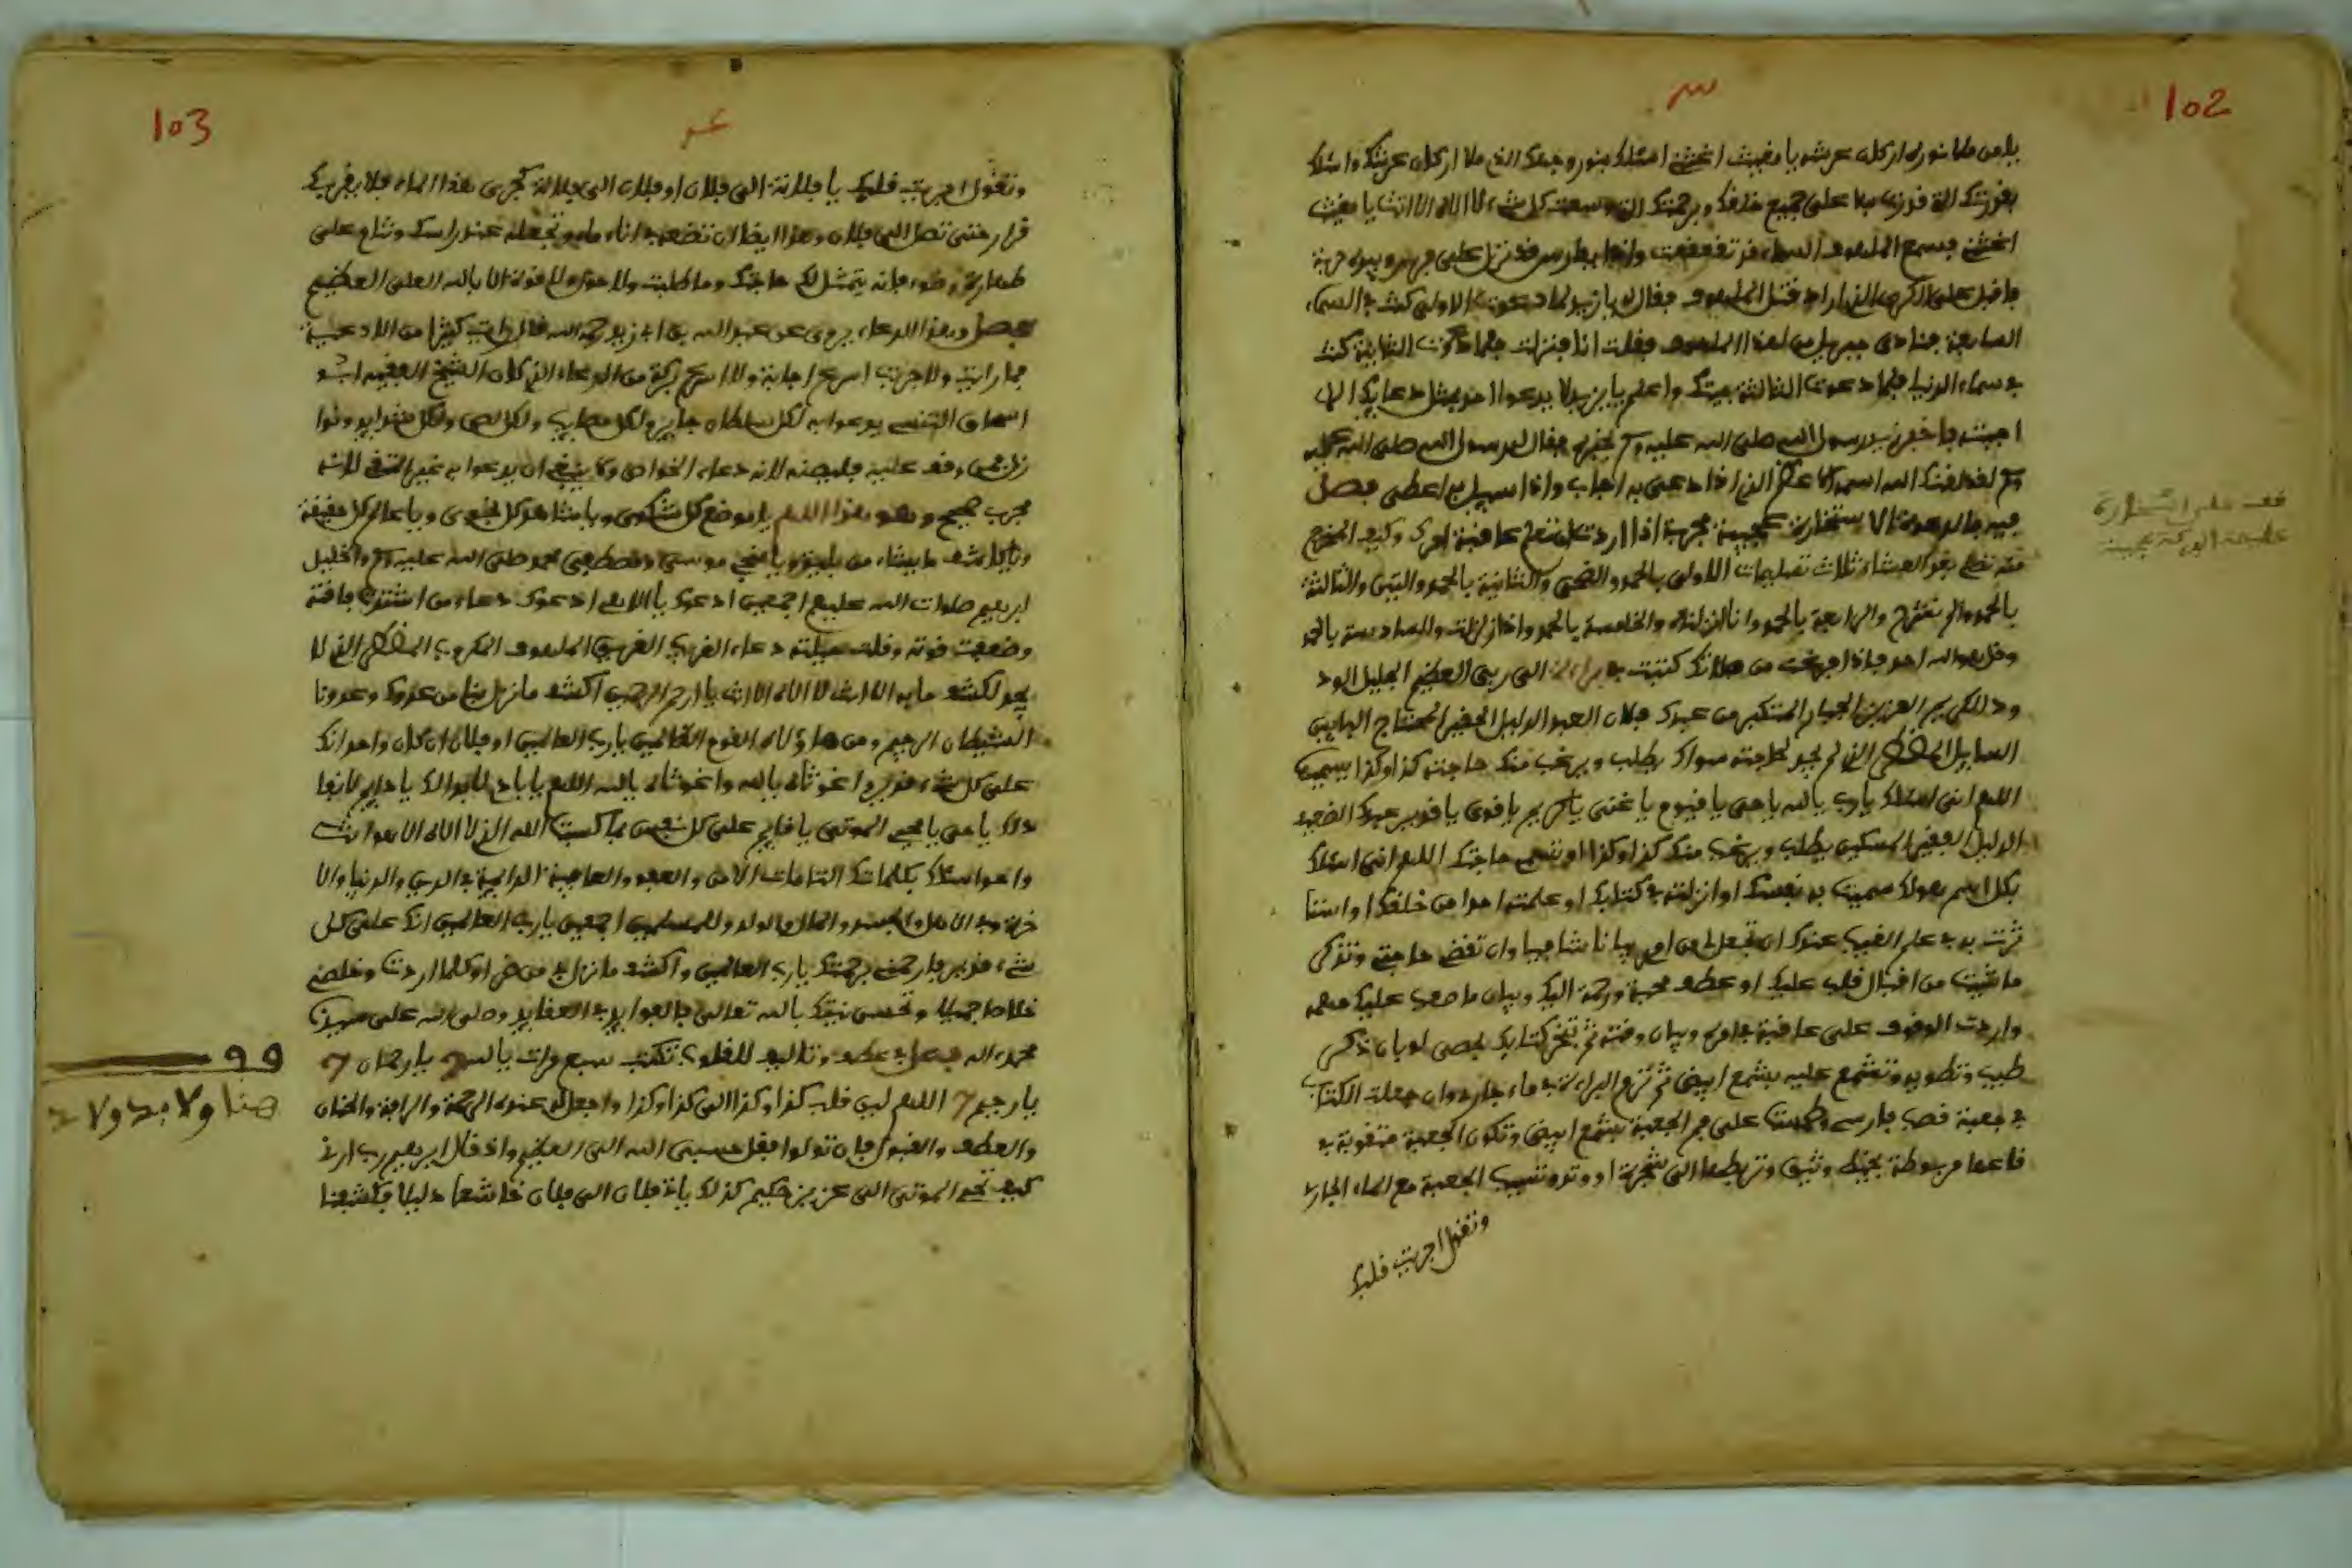 102
يا من ملا نوره اركان عرشه يا مغيث اغثني اسئلك بنور وجهك الذي ملا اركان عرشك واسئلك
بقدرتك التي قدرت بها على جميع خلقك وبرحمتك التي وسعت كل شيء لا اله الا انت يا مغيث
اغثني فسمع الملهوف السماء قد تقعقعت واذا بفارس قد نزل على فرس وبيده حربة
فاقبل على الكردي الذي اراد قتل الملهوف فقال له يا زيد لما دعوت الاولى كنت في السماء
السابعة فنادى جبريل من لهذا الملهوف فقلت انا فنزلت فلما دعوت الثانية كنت
في سماء الدنيا فلما دعوت الثالثة جيتك واعلم يا زيد لا يدعوا احد بمثل دعايك الا
اجبته فاخبر زيد رسول الله صلى الله عليه وسلم بخبره فقال له رسول الله صلى الله عليه
وسلم لقد لقنك الله اسمه الاعظم الذي اذا دعي به اجاب واذا سيل به اعطى فصل
فيه ما لدعوة الاستخارة عجيبة مجربة اذا اردت ان تعلم عاقبة امرك وكيف المخرج
منه تصلي بعد العشاء ثلاث تسليمات الاولى بالحمد والضحى والثانية بالحمد والتين والثالثة
بالحمد والم نشرح والرابعة بالحمد وانا انزلناه والخامسة بالحمد واذا زلزلت والسادسة بالحمد
وقل هو الله احد فاذا فرغت من صلاتك كتبت في براءة الى ربي العظيم الجليل الود
ود الكريم العزيز الجبار المتكبر من عبدك فلان العبد الذليل الحقير المحتاج البايس
السايل المضطر الذي لم يجد لحاجته سواك يطلب ويرغب منك حاجته كذا وكذا يسميها
اللهم اني اسئلك يا رب يا الله يا حي يا قيوم يا غني يا كريم يا قوي يا قدير عبدك الضعيف
الذليل الفقير المسكين يطلب ويرغب منك كذا وكذا وتسمي حاجتك اللهم اني اسئلك
بكل اسم هو لك سميت به نفسك او انزلته في كتابك او علمته احدا من خلقك او استا
ثرت به في علم الغيب عندك ان تجعل لي من امري بيانا شافيا وان تقضي حاجتي وتذكر
ما شيت من اقبال قلب عليك او عطف محبة ورحمة اليك وبيان ما صعب عليك فهمه
واردت الوقوف على عاقبة امره وبيان وقته ثم تبخر كتابك بحصى لوبان ذكر
طيب وتطويه وتشمع عليه بشمع ابيض ثم ترم البراءة في ماء جار وان جعلت الكتاب
في جعبة قصب فارسي وطبعت على فم الجعبة بشمع ابيض وتكون الجعبة مثقوبة في
قاعها مربوطة بخيط وثيق وتربطها الى شجرة او وتد وتسيب الجعبة مع الماء الجاري
وتقول اجريت قلبك
103
وتقول اجريت قلبك يا فلانة الى فلان او فلان الى فلانة كجري هذا الماء فلا يقر بك
قرار حتى تصل الى فلان وهذا ايضا ان تضعه في اناء ماء وتجعله عند راسك وتنام على
طهارة وضوء فانه يتمثل لك حاجتك وما طلبت ولا حول ولا قوة الا بالله العلي العظيم
فصل وهذا الدعاء يروى عن عبد الله بن ابي زيد رحمه الله قال رايت كثيرا من الادعية
فما رايت ولا جربت اسرع اجابة ولا اسرع بركة من الدعاء الذي كان الشيخ الفقيه ابو
اسحاق التنسي يدعوا به لكل سلطان جاير ولكل مصايب ولكل لص ولكل شدايد ونوا
زل فمن وقف عليه فليصنه لانه دعاء الخواص ولا ينبغي ان يدعوا به غير التقي لانه
مجرب صحيح وهو هذا اللهم يا موضع كل شكوى ويا شاهد كل نجوى ويا عالم كل خفية
ويا كاشف ما يشاء من بلية ويا منجي موسى ومصطفي محمد صلى الله عليه وسلم والخليل
ابرهيم صلوات الله عليهم اجمعين ادعوك يا الاهي ادعوك دعاء من اشتدت فاقته
وضعفت قوته وقلت حيلته دعاء الغريب الغريق الملهوف المكروب المضطر الذي لا
يجد لكشف ما به الا انت لا اله الا انت يا ارحم الراحمين اكشف ما نزل بنا من عدوك وعدونا
الشيطان الرجيم ومن هاؤلاء القوم الظالمين يا رب العالمين او فلان ان كان واحدا انك
على كل شيء قدير واغوثاه بالله واغوثاه يا الله اللهم يا بادي لا بدا لك يا دايم لا نفا
د لك يا حي يا محيي الموتى يا قايم على كل نفس بما كسبت الله الذي لا اله الا هو انت
واحد اسئلك بكلماتك التامات الامن والعفو والعافية الدايمة في الدين والدنيا والا
خرة وفي الاهل والجسد والمال والولد وللمسلمين اجمعين يا رب العالمين انك على كل
شيء قدير فارحمني برحمتك يا رب العالمين واكشف ما نزل بي من ضر او كلما اردت وخلصني
خلاصا جميلا وتحسن نيتك بالله تعالى فالفوايد في العقايد وصلى الله على سيدنا
محمد واله فصل في عطف وتاليف للقلوب تكتب سبع مرات يا الله 7 يا رحمان 7
يا رحيم 7 اللهم لين قلب كذا وكذا الى كذا وكذا واجعل له عنده الرحمة والرافة والحنان
والعطف والقبول فان تولوا فقل حسبي الله الى العظيم واذ قال ابرهيم رب ارني
كيف تحي الموتى الى عزيز حكيم كذلك ياتي فلان الى فلان خاشعا ذليلا فكشفنا
هنا ولا بد ولا بد